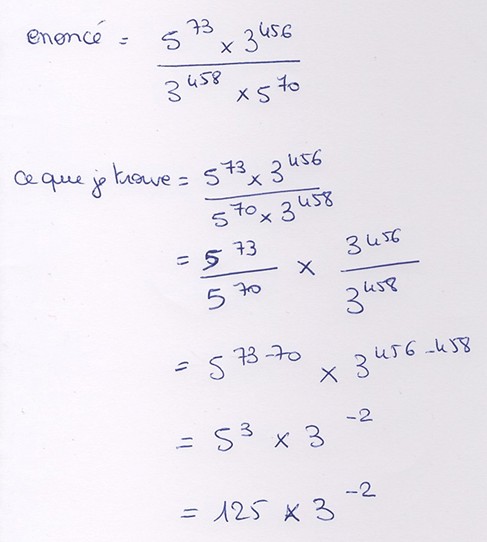 enoncé = 5^73 x 3^456
3^458 x 5^70
ce que je trouve = 5^73 x 3^456
5^70 x 3^458
= 5^73 x 3^456
5^70 3^458
= 5^73-70 x 3^456-458
= 5^3 x 3^-2
= 125 x 3^-2